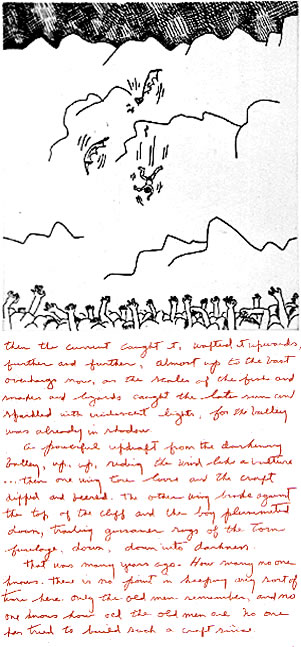 then the current caught it, wafted it upwards,
further and further, almost up to the vast
overhang now, as the scales of the fish and
snakes and lizards caught the late sun and
sparkled with iridescent lights, for the valley
was already in shadow
A powerful updraft from the darkening
valley, up, up, riding the wind like a vulture
... then one wing tore loose and the craft
dipped and veered. The other wing broke against
the top of the cliff and the boy plummeted
down, trailing gossamer rags of the torn
fuselage, down, down into darkness.
That was many years ago. How many no one
knows. There is no point in keeping any sort of
time here. Only the old men remember, and no
one knows how old the old men are. No one
has tried to build such a craft since.